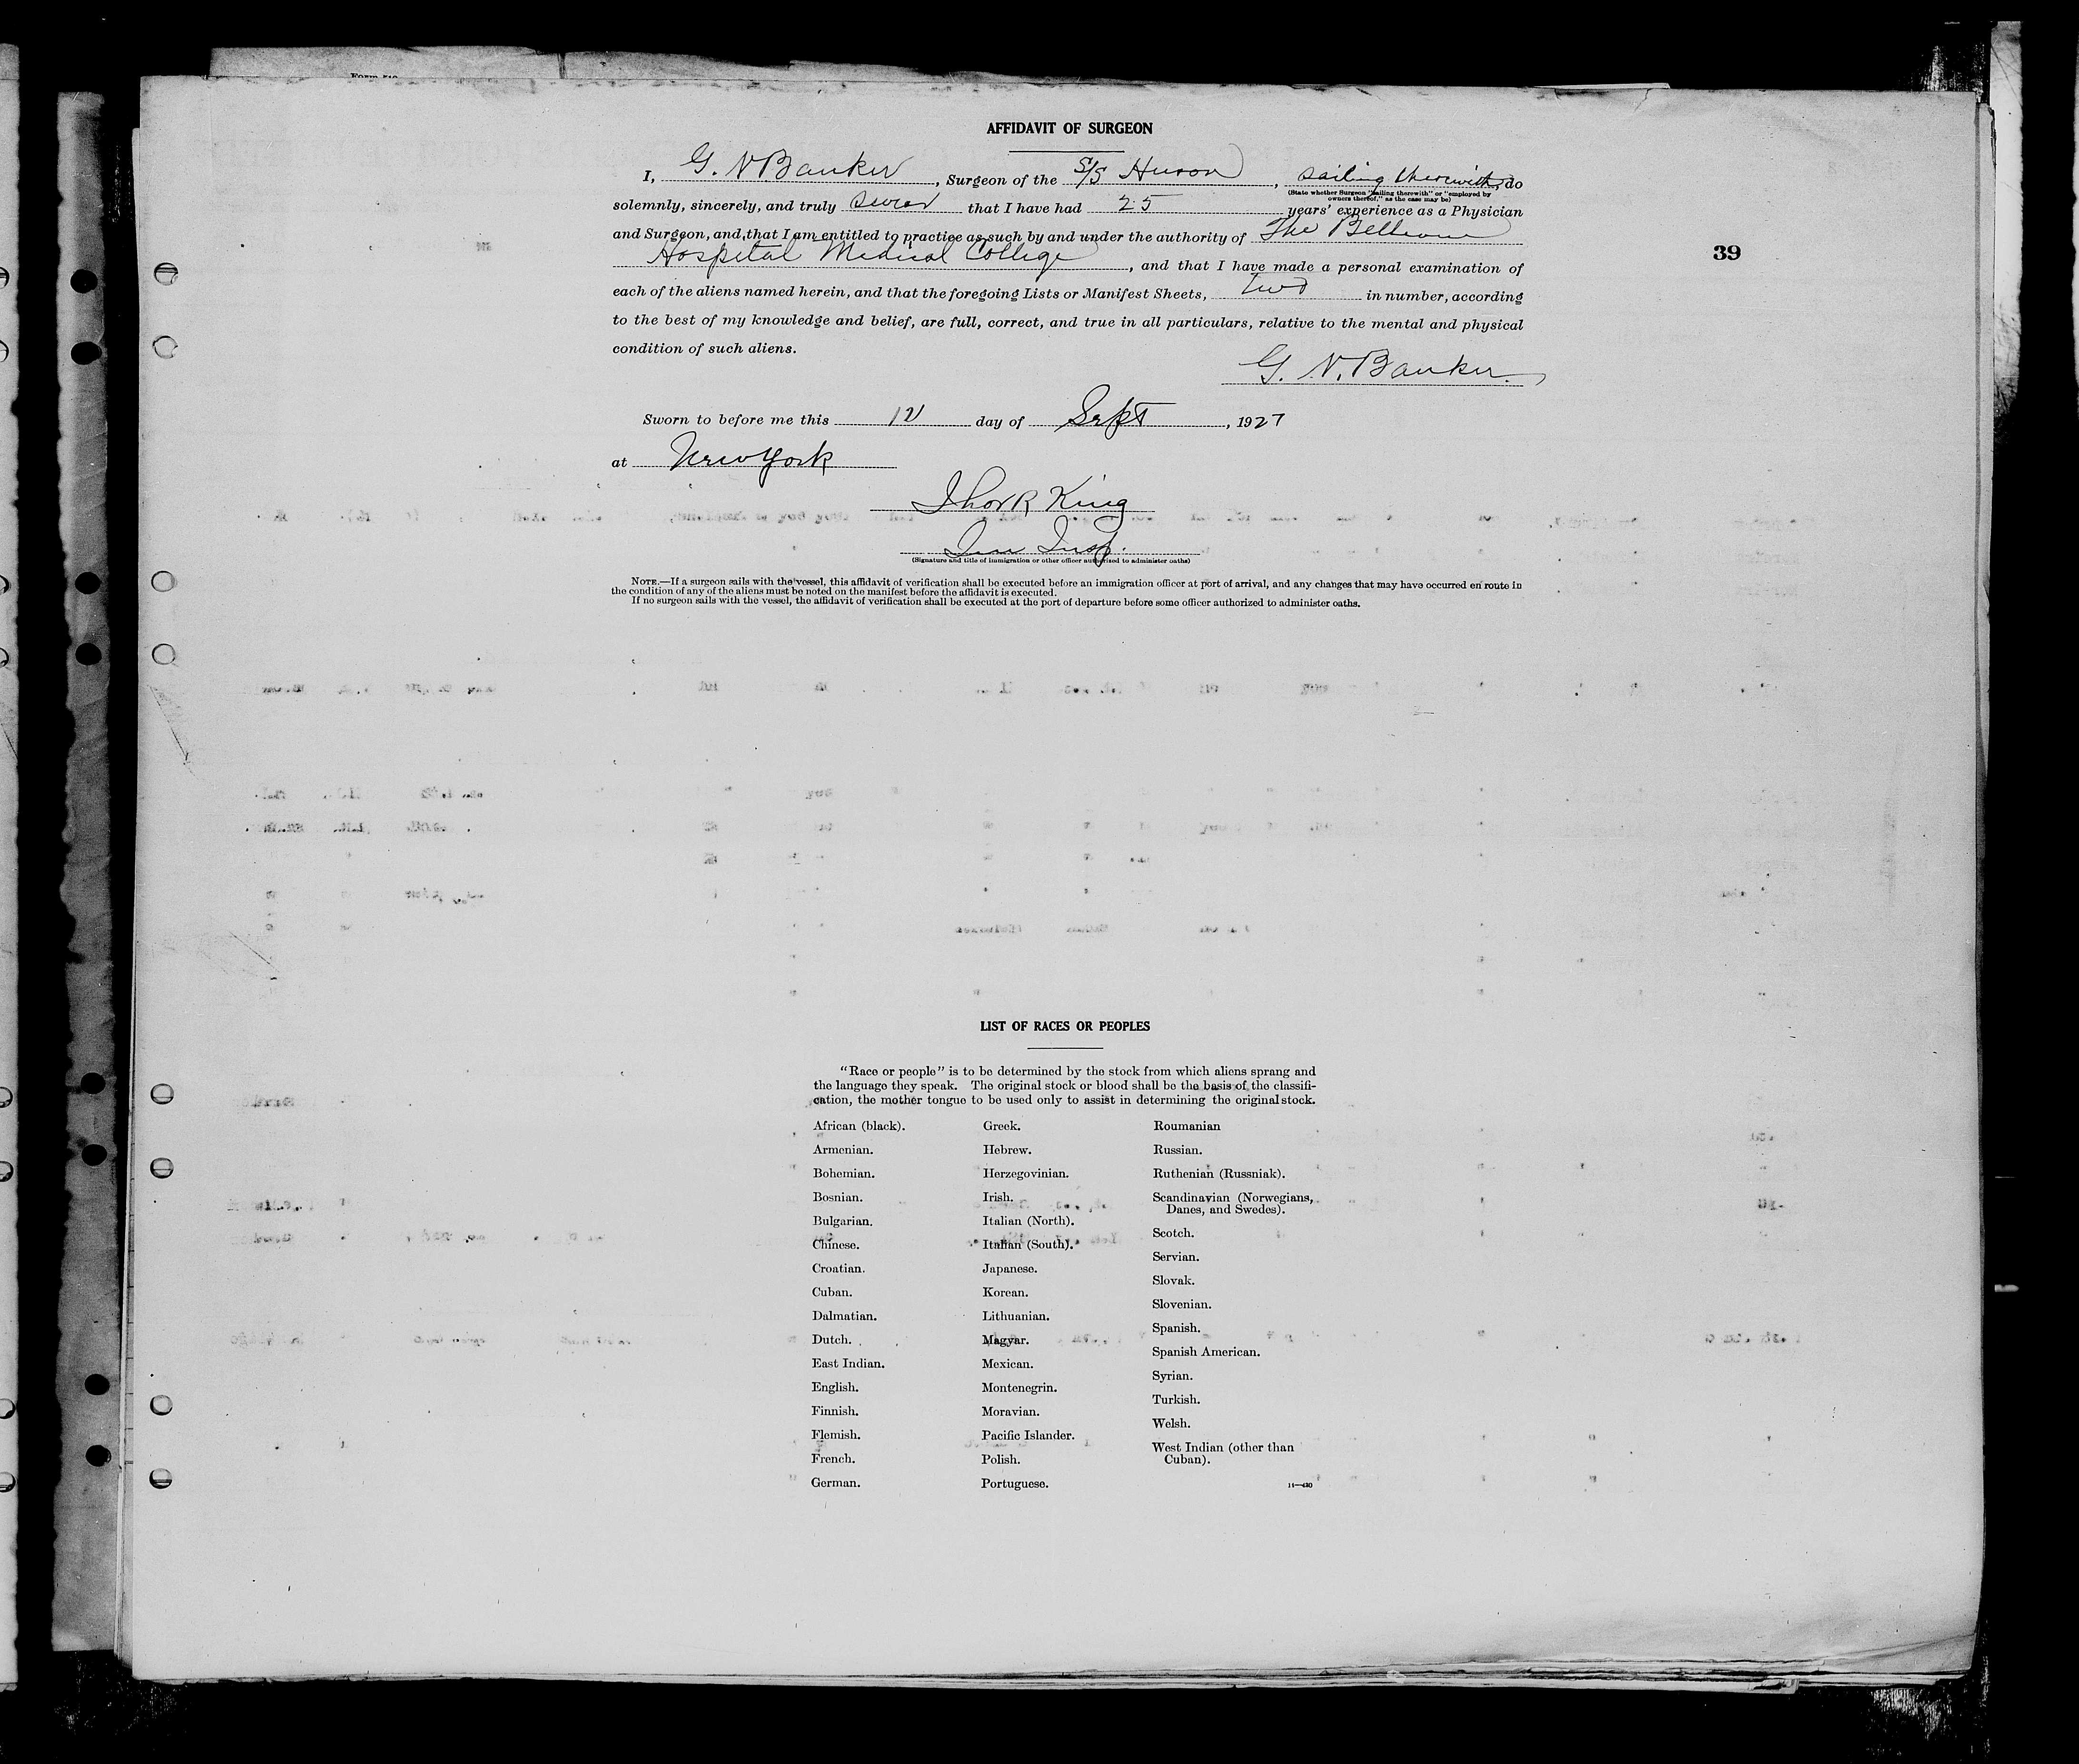 AFFIDAVIT OF SURGEON
I, G. N. Banker, Surgeon of the S/S Huron, sailing therewith, do
(State whether Surgeon "sailing therewith" or "employed by
owners thereof," as the case may be)
solemnly, sincerely, and truly swear that I have had 25 years' experience as a Physician
and Surgeon, and that I am entitled to practice as such by and under the authority of The Bellevue
Hospital Medical College, and that I have made a personal examination of
39
each of the aliens named herein, and that the foregoing Lists or Manifest Sheets, two in number, according
to the best of my knowledge and belief, are full, correct, and true in all particulars, relative to the mental and physical
condition of such aliens.
G. N. Banker.
Sworn to before me this 12 day of Sept, 1927
at New York
King
Imm Insp.
(Signature and title of immigration or other officer authorized to administer oaths)
NOTE.—If a surgeon sails with the vessel, this affidavit of verification shall be executed before an immigration officer at port of arrival, and any changes that may have occurred en route in
the condition of any of the aliens must be noted on the manifest before the affidavit is executed.
If no surgeon sails with the vessel, the affidavit of verification shall be executed at the port of departure before some officer authorized to administer oaths.
LIST OF RACES OR PEOPLES
"Race or people" is to be determined by the stock from which aliens sprang and
the language they speak. The original stock or blood shall be the basis of the classifi-
cation, the mother tongue to be used only to assist in determining the original stock.
African (black).
Armenian.
Bohemian.
Bosnian.
Bulgarian.
Chinese.
Croatian.
Cuban.
Dalmatian.
Dutch.
East Indian.
English.
Finnish.
Flemish.
French.
German.
Greek.
Hebrew.
Herzegovinian.
Irish.
Italian (North).
Italian (South).
Japanese.
Korean.
Lithuanian.
Magyar.
Mexican.
Montenegrin.
Moravian.
Pacific Islander.
Polish.
Portuguese.
Roumanian
Russian.
Ruthenian (Russniak).
Scandinavian (Norwegians,
Danes, and Swedes).
Scotch.
Servian.
Slovak.
Slovenian.
Spanish.
Spanish American.
Syrian.
Turkish.
Welsh.
West Indian (other than
Cuban).